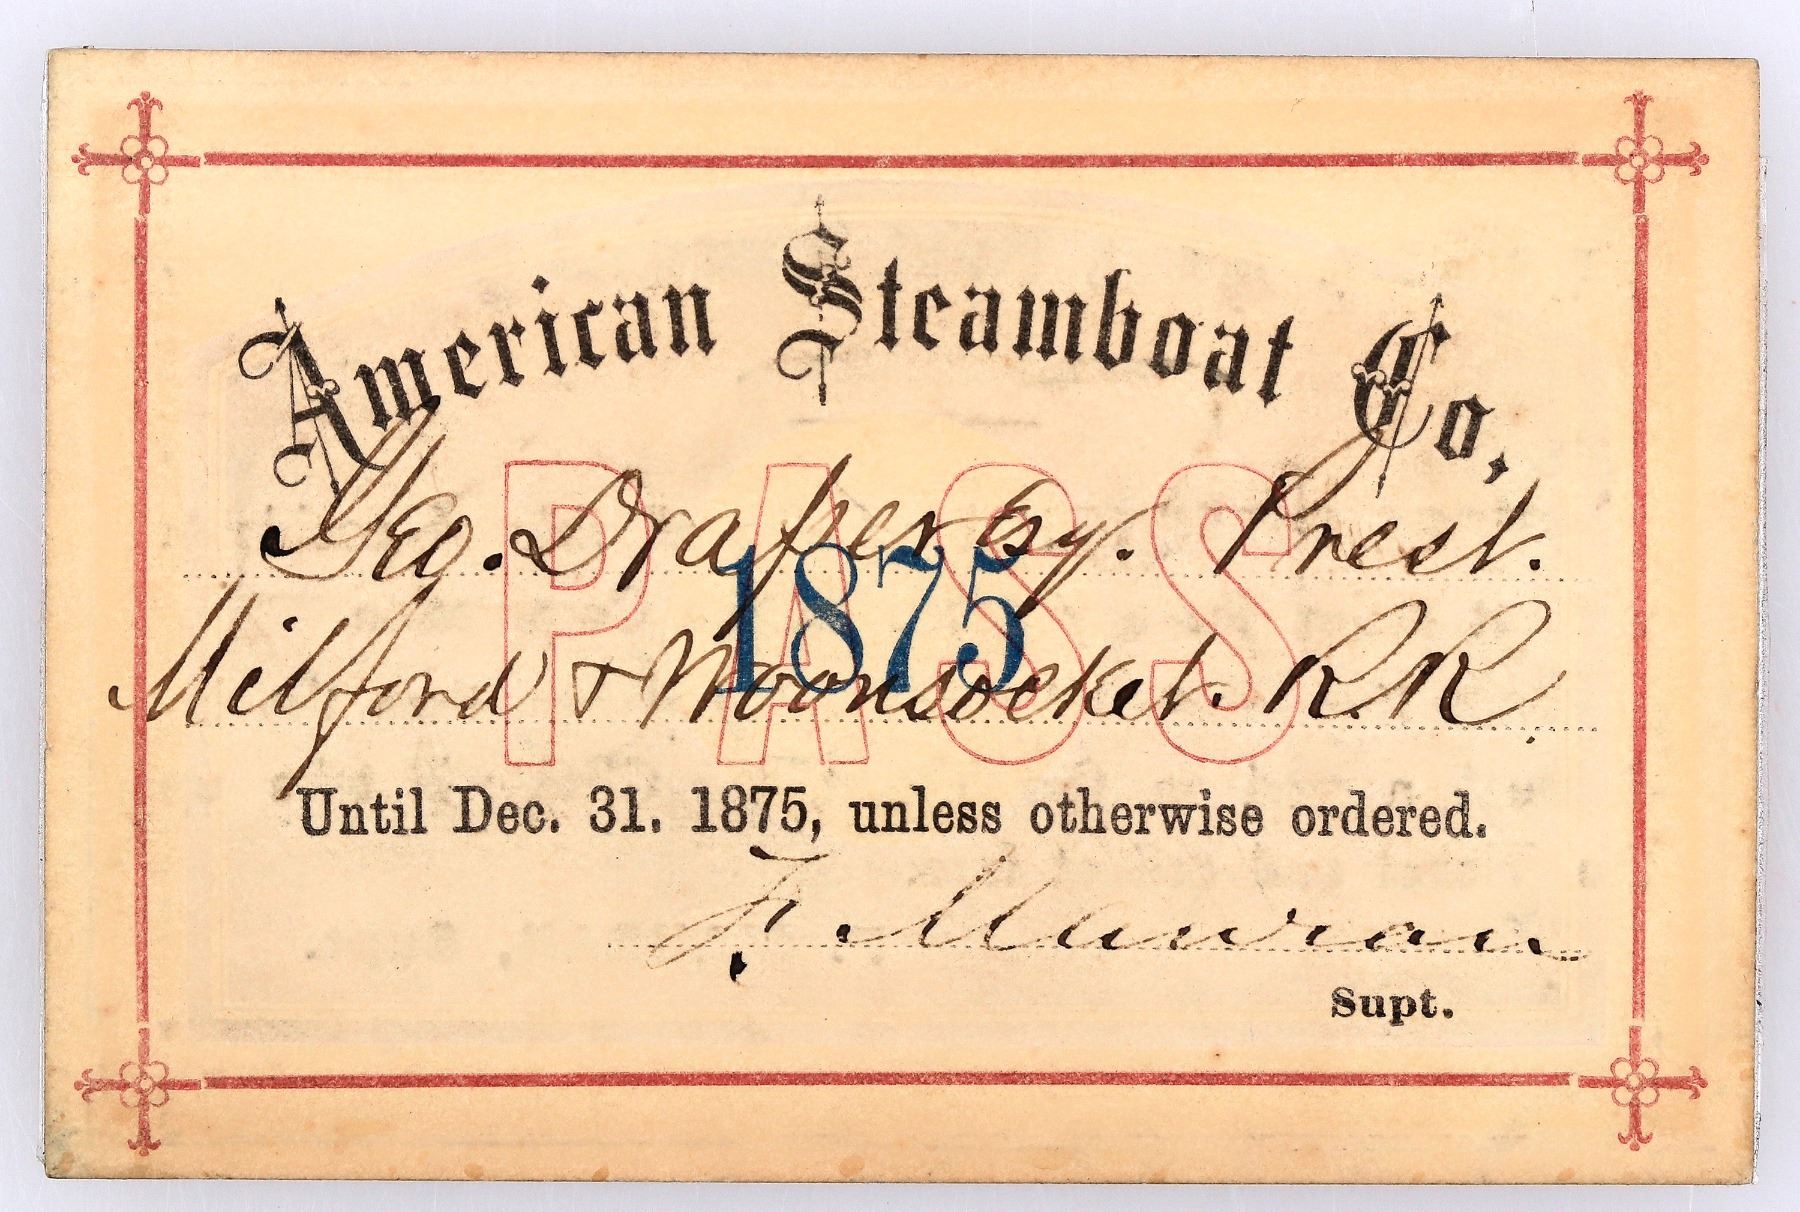 American Steamboat Co.
PASS
Geo. Draper Esq. Prest.
1875
Milford & Woonsocket R.R.
Until Dec. 31. 1875, unless otherwise ordered.
F. Mawran
Supt.